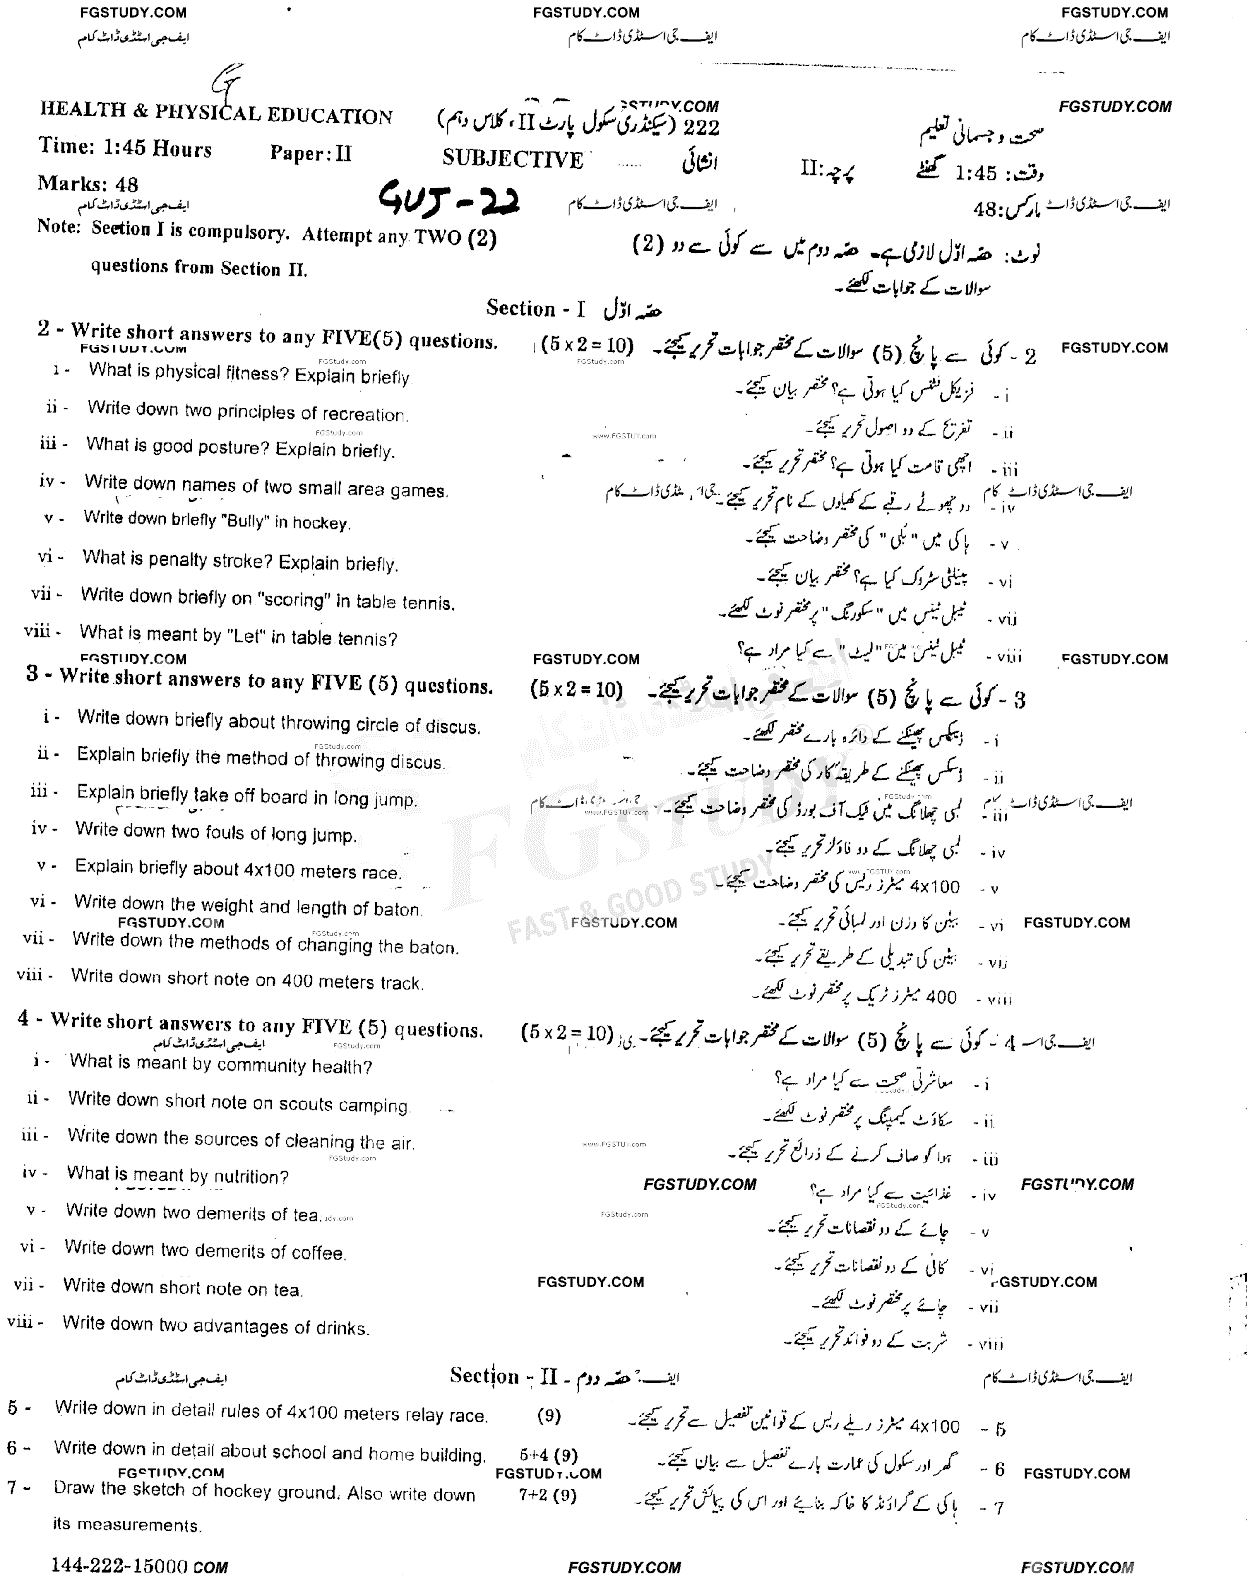 FGSTUDY.COM FGSTUDY.COM FGSTUDY.COM
ایف جی اسٹڈی ڈاٹ کام ایف جی اسٹڈی ڈاٹ کام ایف جی اسٹڈی ڈاٹ کام
G
HEALTH & PHYSICAL EDUCATION 222 (سیکنڈری سکول پارٹ II، کلاس دہم) صحت و جسمانی تعلیم FGSTUDY.COM
Time: 1:45 Hours Paper: II SUBJECTIVE انشائی پرچہ: II وقت: 1:45 گھنٹے
Marks: 48 GUJ-22 مارکس: 48
ایف جی اسٹڈی ڈاٹ کام ایف جی اسٹڈی ڈاٹ کام ایف جی اسٹڈی ڈاٹ
Note: Section I is compulsory. Attempt any TWO (2) نوٹ: حصہ اوّل لازمی ہے۔ حصہ دوم میں سے کوئی سے دو (2)
questions from Section II. سوالات کے جوابات لکھئے۔
Section - I حصہ اوّل
2 - Write short answers to any FIVE(5) questions. (5 x 2 = 10) 2 - کوئی سے پانچ (5) سوالات کے مختصر جوابات تحریر کیجئے۔
FGSTUDY.COM FGStudy.com FGStudy.com FGSTUDY.COM
i - What is physical fitness? Explain briefly i - فزیکل فٹنس کیا ہوتی ہے؟ مختصر بیان کیجئے۔
ii - Write down two principles of recreation. ii - تفریح کے دو اصول تحریر کیجئے۔
FGStudy.com www.FGSTUY.com
iii - What is good posture? Explain briefly. iii - اچھی قامت کیا ہوتی ہے؟ مختصر تحریر کیجئے۔
iv - Write down names of two small area games. iv - دو چھوٹے رقبے کے کھیلوں کے نام تحریر کیجئے۔
ایف جی اسٹڈی ڈاٹ کام
v - Write down briefly "Bully" in hockey. v - ہاکی میں "بُلی" کی مختصر وضاحت کیجئے۔
vi - What is penalty stroke? Explain briefly. vi - پینلٹی سٹروک کیا ہے؟ مختصر بیان کیجئے۔
vii - Write down briefly on "scoring" in table tennis. vii - ٹیبل ٹینس میں "سکورنگ" پر مختصر نوٹ لکھئے۔
viii - What is meant by "Let" in table tennis? viii - ٹیبل ٹینس میں "لیٹ" سے کیا مراد ہے؟
FGSTUDY.COM FGSTUDY.COM FGSTUDY.COM
3 - Write short answers to any FIVE (5) questions. (5 x 2 = 10) 3 - کوئی سے پانچ (5) سوالات کے مختصر جوابات تحریر کیجئے۔
i - Write down briefly about throwing circle of discus. i - ڈسکس پھینکنے کے دائرہ بارے مختصر لکھئے۔
FGStudy.com
ii - Explain briefly the method of throwing discus. ii - ڈسکس پھینکنے کے طریقہ کار کی مختصر وضاحت کیجئے۔
iii - Explain briefly take off board in long jump. iii - لمبی چھلانگ میں ٹیک آف بورڈ کی مختصر وضاحت کیجئے۔
ایف جی اسٹڈی ڈاٹ کام
iv - Write down two fouls of long jump. iv - لمبی چھلانگ کے دو فاؤلز تحریر کیجئے۔
v - Explain briefly about 4x100 meters race. v - 4x100 میٹرز ریس کی مختصر وضاحت کیجئے۔
FGSTUDY
FAST & GOOD STUDY
vi - Write down the weight and length of baton. vi - بیٹن کا وزن اور لمبائی تحریر کیجئے۔
FGSTUDY.COM FGSTUDY.COM FGSTUDY.COM
FGStudy.com
vii - Write down the methods of changing the baton. vii - بیٹن کی تبدیلی کے طریقے تحریر کیجئے۔
viii - Write down short note on 400 meters track. viii - 400 میٹرز ٹریک پر مختصر نوٹ لکھئے۔
4 - Write short answers to any FIVE (5) questions. (5 x 2 = 10) 4 - کوئی سے پانچ (5) سوالات کے مختصر جوابات تحریر کیجئے۔
ایف جی اسٹڈی ڈاٹ کام FGStudy.com
i - What is meant by community health? i - معاشرتی صحت سے کیا مراد ہے؟
ii - Write down short note on scouts camping ii - سکاؤٹ کیمپنگ پر مختصر نوٹ لکھئے۔
iii - Write down the sources of cleaning the air. iii - ہوا کو صاف کرنے کے ذرائع تحریر کیجئے۔
FGStudy.com www.FGSTUY.com
iv - What is meant by nutrition? iv - غذائیت سے کیا مراد ہے؟
FGSTUDY.COM FGSTUDY.COM
v - Write down two demerits of tea. v - چائے کے دو نقصانات تحریر کیجئے۔
FGStudy.com
vi - Write down two demerits of coffee. vi - کافی کے دو نقصانات تحریر کیجئے۔
vii - Write down short note on tea. FGSTUDY.COM vii - چائے پر مختصر نوٹ لکھئے۔ FGSTUDY.COM
viii - Write down two advantages of drinks. viii - شربت کے دو فوائد تحریر کیجئے۔
ایف جی اسٹڈی ڈاٹ کام Section - II - حصہ دوم ایف جی اسٹڈی ڈاٹ کام
5 - Write down in detail rules of 4x100 meters relay race. (9) 5 - 4x100 میٹرز ریلے ریس کے قوانین تفصیل سے تحریر کیجئے۔
6 - Write down in detail about school and home building. 5+4 (9) 6 - گھر اور سکول کی عمارت بارے تفصیل سے بیان کیجئے۔
FGSTUDY.COM FGSTUDY.COM FGSTUDY.COM
7 - Draw the sketch of hockey ground. Also write down 7+2 (9) 7 - ہاکی کے گراؤنڈ کا خاکہ بنائیے اور اس کی پیمائش تحریر کیجئے۔
its measurements.
144-222-15000 COM FGSTUDY.COM FGSTUDY.COM